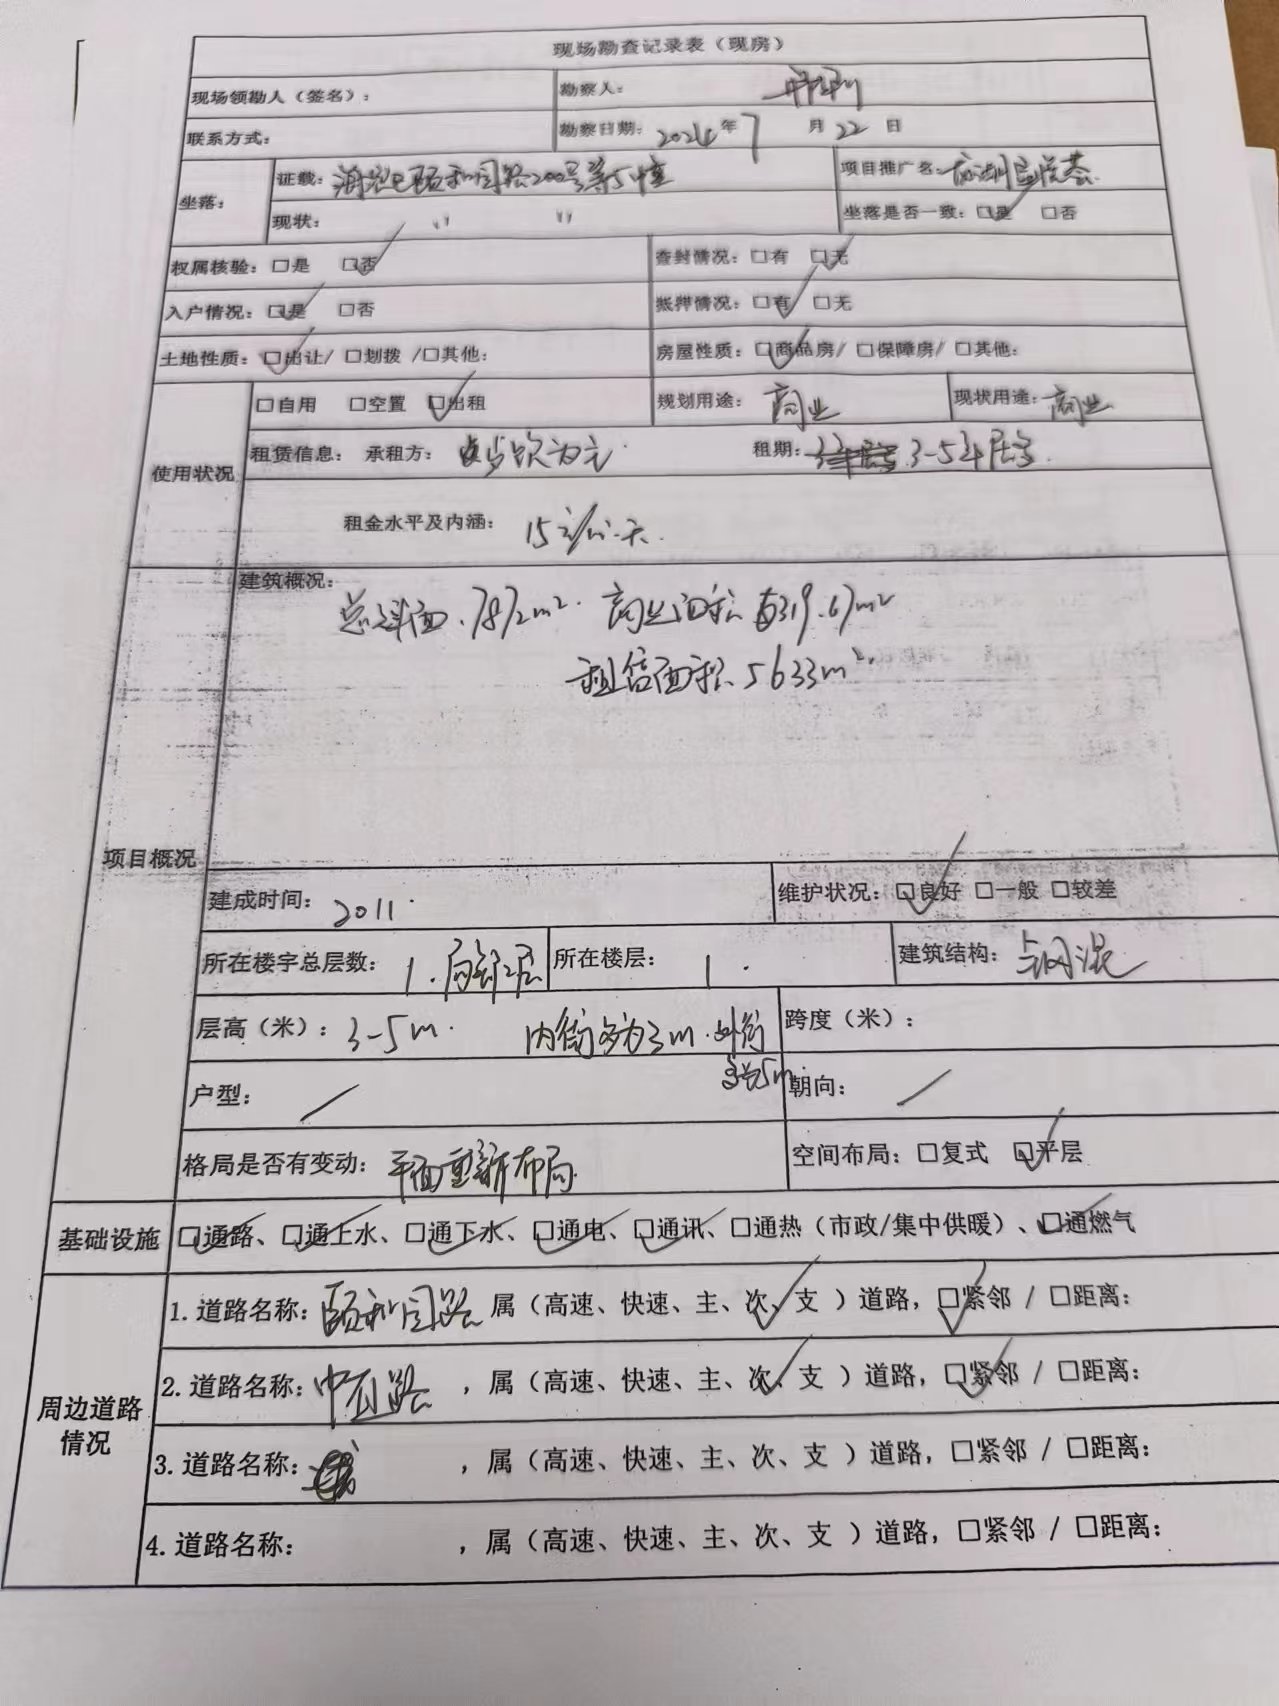 现场勘查记录表（现房）
现场领勘人（签名）： 勘察人：
联系方式： 勘察日期：2024年7月22日
坐落： 证载：海淀区颐和园路200号等5幢 项目推广名：
现状： 〃 〃 坐落是否一致：☑是 □否
权属核验：□是 ☑否 查封情况：□有 ☑无
入户情况：☑是 □否 抵押情况：☑有 □无
土地性质：☑出让/ □划拨 /□其他： 房屋性质：☑商品房/ □保障房/ □其他：
使用状况 □自用 □空置 ☑出租 规划用途：商业 现状用途：商业
租赁信息： 承租方：餐饮为主. 租期：3-5年居多.
租金水平及内涵： 15元/㎡·天.
项目概况 建筑概况：
总建面.7872m². 商业面积 6319.67m²
租售面积 5633m².
建成时间：2011. 维护状况：☑良好 □一般 □较差
所在楼宇总层数：1.局部2层 所在楼层：1. 建筑结构：钢混
层高（米）：3-5m. 内街多为3m.外街 跨度（米）：
5m.
户型：／ 朝向：／
格局是否有变动：平面重新布局. 空间布局：□复式 ☑平层
基础设施 ☑通路、☑通上水、☑通下水、☑通电、☑通讯、□通热（市政/集中供暖）、☑通燃气
周边道路情况
1. 道路名称：颐和园路 属（高速、快速、主、次✓、支 ）道路，☑紧邻 / □距离：
2. 道路名称：中直路 ，属（高速、快速、主、次✓、支 ）道路，☑紧邻 / □距离：
3. 道路名称： ，属（高速、快速、主、次、支 ）道路，□紧邻 / □距离：
4. 道路名称： ，属（高速、快速、主、次、支 ）道路，□紧邻 / □距离：